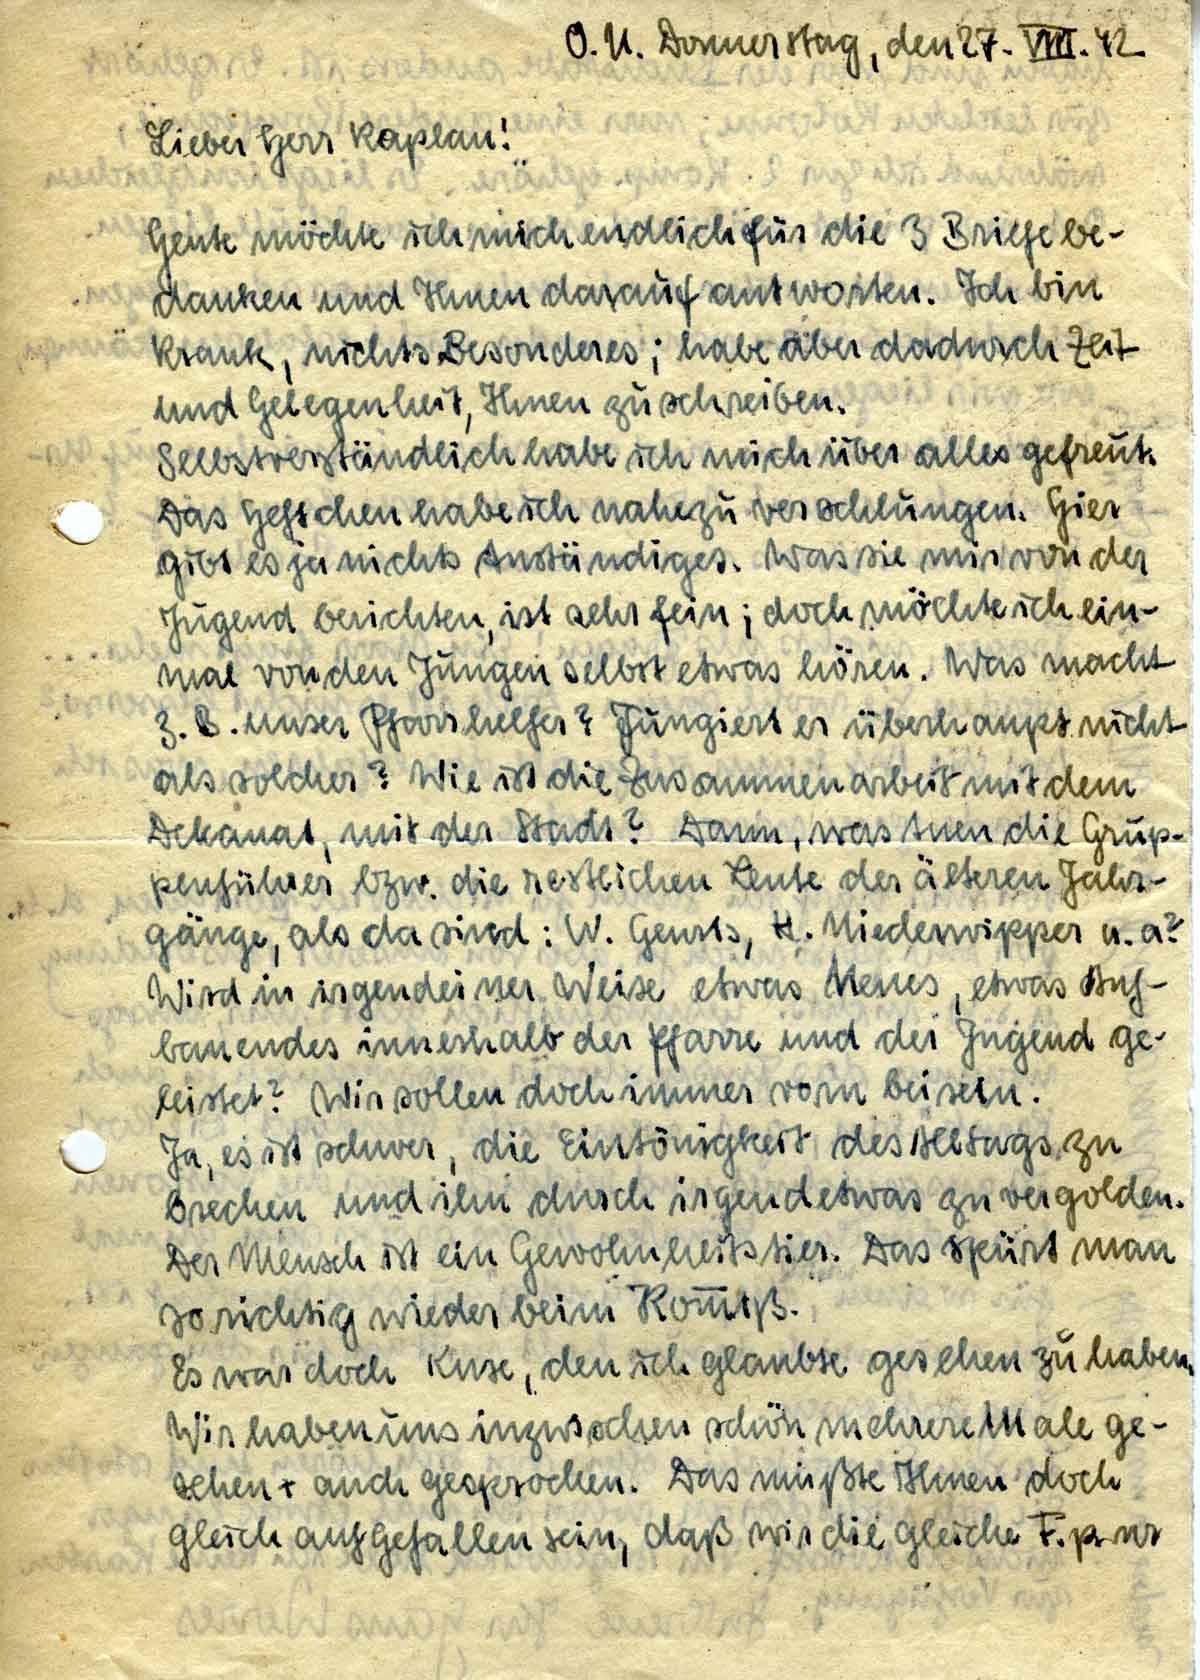 O. U. Donnerstag, den 27. VIII. 42
Lieber Herr Kaplan!
Heute möchte ich mich endlich für die 3 Briefe be-
danken und Ihnen darauf antworten. Ich bin
krank, nichts Besonderes; habe aber dadurch Zeit
und Gelegenheit, Ihnen zu schreiben.
Selbstverständlich habe ich mich über alles gefreut.
Das Heftchen habe ich nahezu verschlungen. Hier
gibt es ja nichts Anständiges. Was sie mir von der
Jugend berichten, ist sehr fein; doch möchte ich ein-
mal von den Jungen selbst etwas hören. Was macht
z. B. unser Pfarrhelfer? Fungiert er überhaupt nicht
als solcher? Wie ist die Zusammenarbeit mit dem
Dekanat, mit der Stadt? Dann, was tuen die Grup-
penführer bzw. die restlichen Leute der älteren Jahr-
gänge, als da sind: W. Geurts, H. Niederwipper u. a?
Wird in irgendeiner Weise etwas Neues, etwas Auf-
bauendes innerhalb der Pfarre und der Jugend ge-
leistet? Wir sollen doch immer vorn bei sein.
Ja, es ist schwer, die Eintönigkeit des Alltags zu
brechen und ihn durch irgendetwas zu vergolden.
Der Mensch ist ein Gewohnheitstier. Das spürt man
so richtig wieder beim Kom̅iß.
Es war doch Kuse, den ich glaubte gesehen zu haben.
Wir haben uns inzwischen schön mehrere Male ge-
sehen + auch gesprochen. Das müßte Ihnen doch
gleich aufgefallen sein, daß wir die gleiche F.p. nr